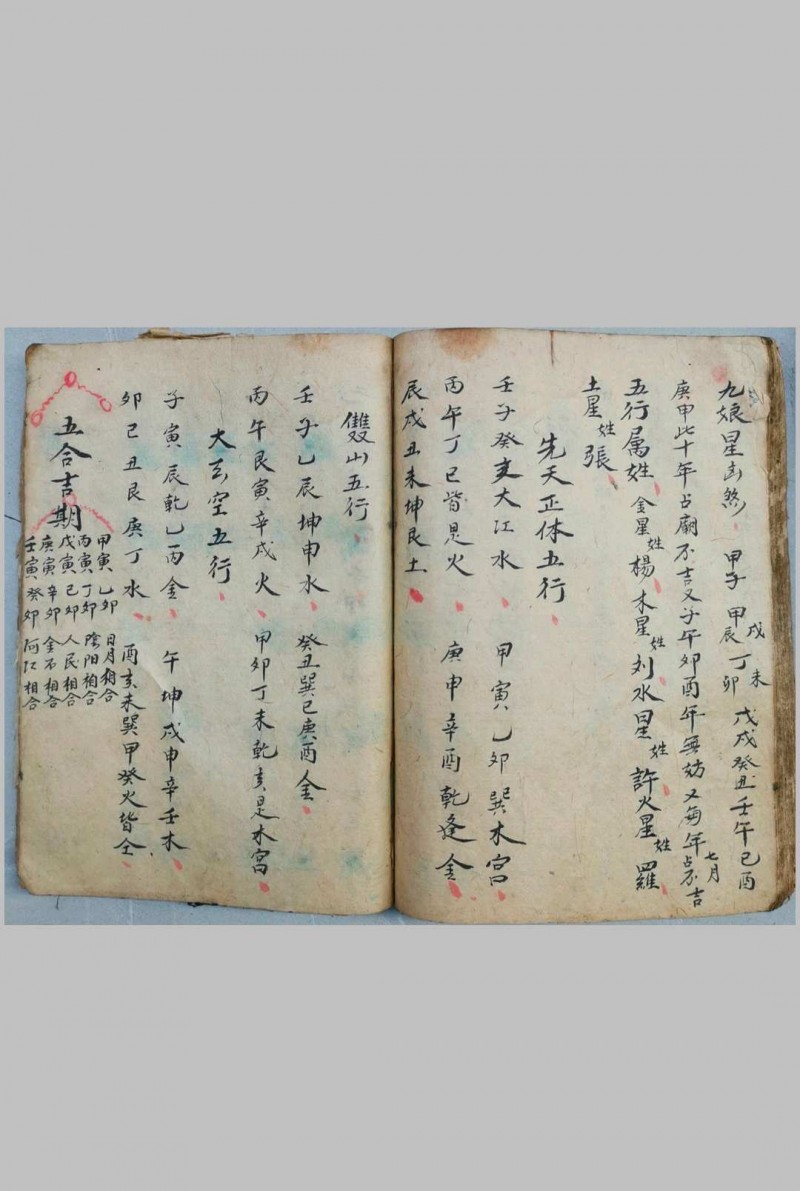 九娘星凶煞 甲子 甲戌辰 丁未卯 戊戌癸丑壬午己酉
庚申此十年占廟不吉又子午卯酉年無妨又每年七月占不吉
五行属姓 金星姓楊 木星姓刘水星姓許火星姓羅
土星姓張
先天正体五行
壬子癸亥大江水 甲寅乙卯巽木宮
丙午丁巳皆是火 庚申辛酉乾逢金
辰戌丑未坤艮土
雙山五行
壬子乙辰坤申水 癸丑巽巳庚酉金
丙午艮寅辛戌火 甲卯丁未乾亥是木宮
大玄空五行
子寅辰乾乙丙金 午坤戌申辛壬木
卯巳丑艮庚丁水 酉亥未巽甲癸火皆全
五合吉期
甲寅乙卯 日月相合
丙寅丁卯 陰阳相合
戊寅己卯 人民相合
庚寅辛卯 金石相合
壬寅癸卯 河江相合